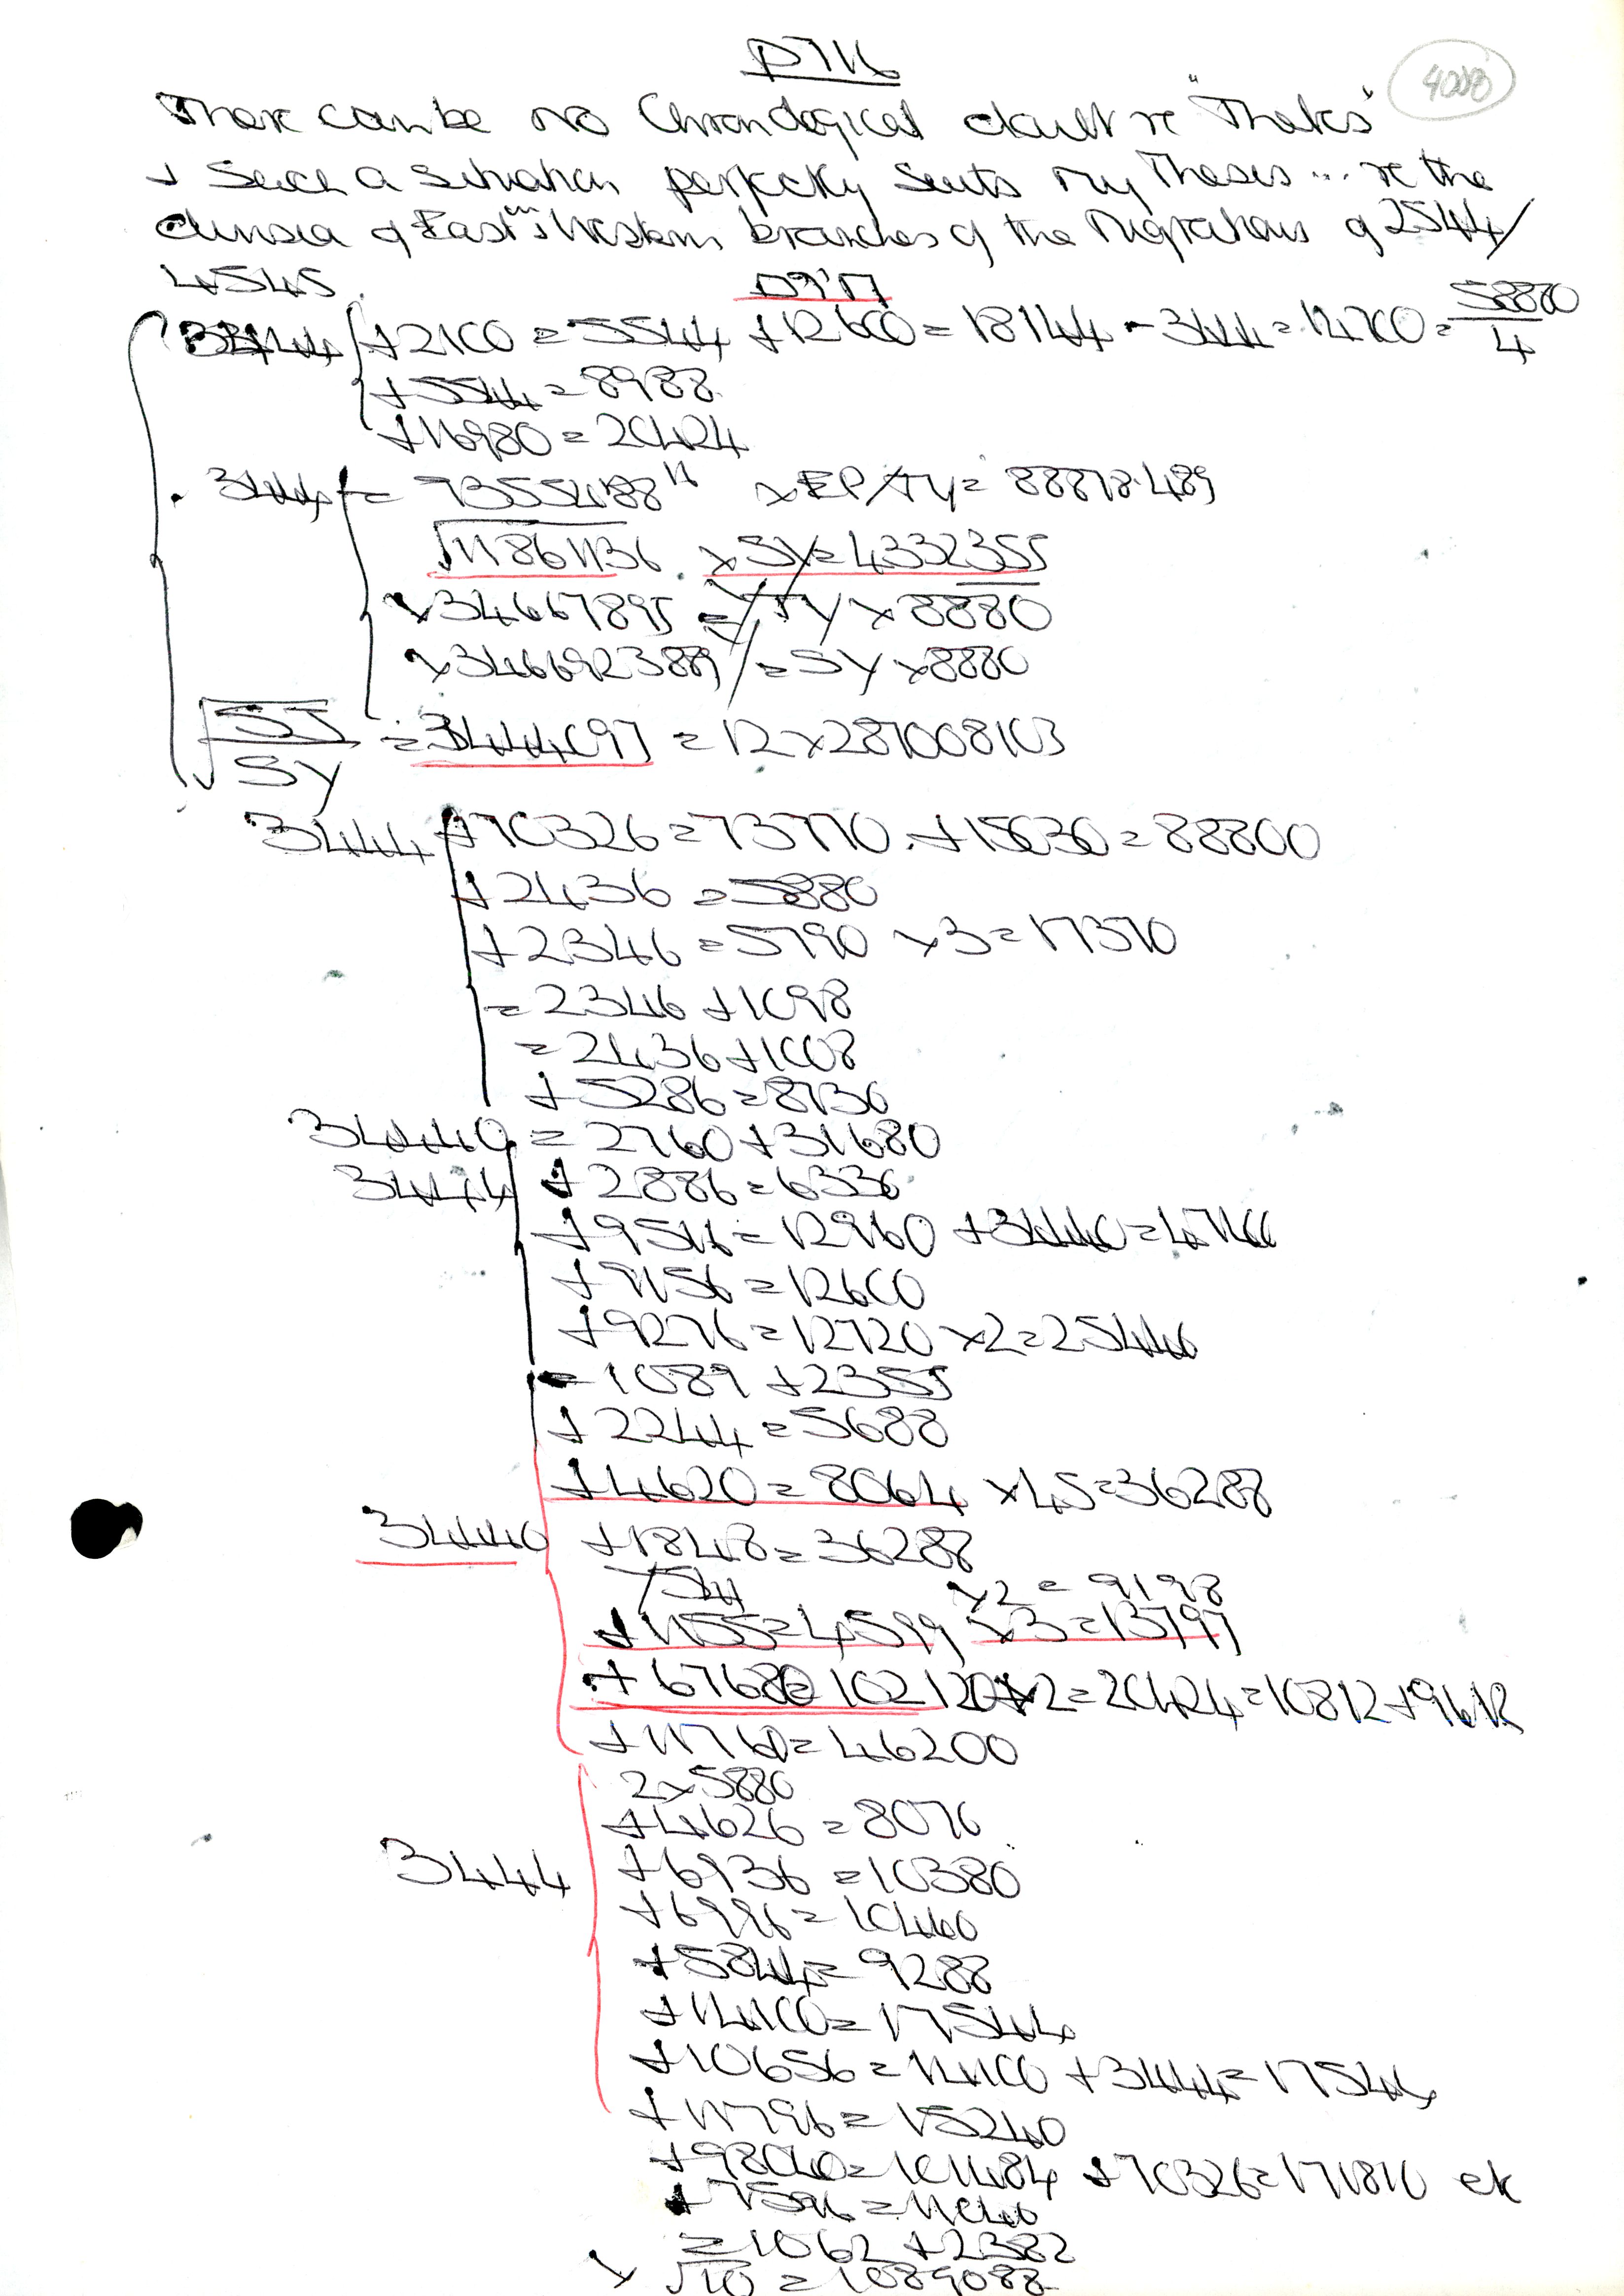 D716
4008
There can be no Chronological doubt re "Thetes"
+ Such a situation perfectly suits my Thesis ... re the
of East & Western branches of the Migrations of 2544/
4545.
3444 +2100 = 5544 +12600 = 18144 - 3444 = 14700 = 58800/4
+5544 = 8988
+16980 = 20424
3444 = xEP/TY = 88878.489
√11861136 . xSY = 4332355
x34667895 = TY x 8880
x346692389 = SY x 8880
√SJ/SY = 3444097 = 12 x 287008103
3444 +70326 = 73770 . +15030 = 88800
+2436 = 5880
+2346 = 5790 x3 = 17370
= 2346 +1098
= 2436 +1008
+5286 = 8730
34440 = 2760 +31680
3444 +2886 = 6330
+9516 = 12960 +34440 = 47400
+9156 = 12600
+9276 = 12720 x2 = 25440
= 1089 +2355
+2244 = 5688
+4620 = 8064 x45 = 36288
34440 +1848 = 36288
x2 = 9198
+1155 = 4599 x3 = 13797
+67680 = 102120 x2 = 20424 = 10812 +9612
+11760 = 46200
2 x 5880
+4626 = 8070
3444 +6936 = 10380
+6996 = 10440
+5844 = 9288
+14100 = 17544
+10656 = 14100 +3444 = 17544
+11796 = 15240
+98040 = 101484 +70326 = 171810 etc
+7596 = 11040
= 1062 +2382
x √10 = 1089088